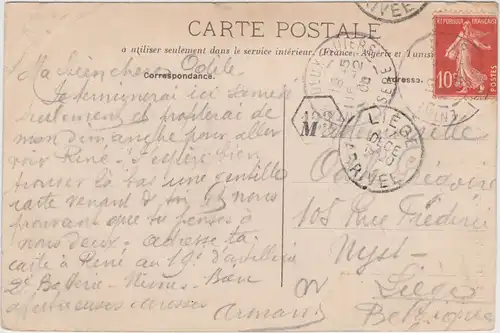 CARTE POSTALE
à utiliser seulement dans le service intérieur. (France, Algérie et Tunisie
Correspondance.
Adresse.
RÉPUBLIQUE FRANÇAISE
10
POSTES
LIÈGE
ARRIVÉE
M
Ma bien chère Odile
Je t'ai ici
et profiterai de
mon dimanche pour aller
voir René. J'espère bien
trouver là bas une gentille
carte venant de toi et nous
prouvant que tu penses à
nous deux. adresse ta
carte à René au 19e d'artillerie
2e Batterie - Nîmes -
affectueuses caresses
Armand
Mademoiselle
Odile
105 Rue Frédéric
Nyst
Liège
Belgique